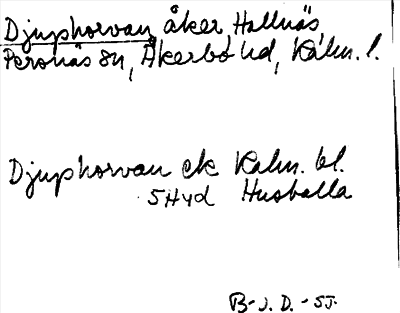 Djuphorvan, åker, Hallnäs
Persnäs sn, Åkerbo hd, Kalm. l.
Djuphorvan ek Kalm. bl.
5 H y d Husballa
B-J. D. - SJ.